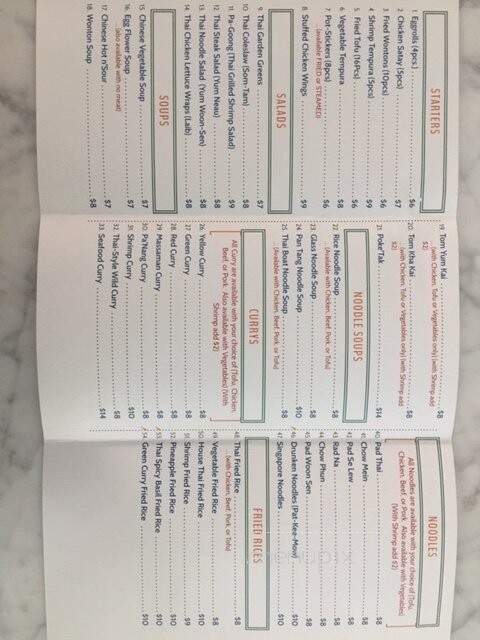 STARTERS
1. Eggrolls (4pcs) $6
2. Chicken Satay (5pcs) $7
3. Fried Wontons (10pcs) $6
4. Shrimp Tempura (5pcs) $9
5. Fried Tofu (16Pcs) $6
6. Vegetable Tempura $8
7. Pot-Stickers (8pcs) $6
...(available FRIED or STEAMED)
8. Stuffed Chicken Wings $9
SALADS
9. Thai Garden Greens $7
10. Thai Coleslaw (Som-Tam) $8
11. Pa-Goong (Thai Grilled Shrimp Salad) $9
12. Thai Steak Salad (Yum Neau) $8
13. Thai Noodle Salad (Yum Woon-Sen) $8
14. Thai Chicken Lettuce Wraps (Laib) $8
SOUPS
15. Chinese Vegetable Soup $7
16. Egg Flower Soup $7
(also available with no meat)
17. Chinese Hot n'Sour $7
18. Wonton Soup $8
19. Tom Yum Kai $8
...(with Chicken, Tofu or Vegetables only) (with Shrimp add
$2)
20. Tom Kha Kai $8
...(with Chicken, Tofu or Vegetables only) (with Shrimp add
$2)
21. Poke'Tak $14
NOODLE SOUPS
22. Rice Noodle Soup $8
...(Available with Chicken, Beef, Pork, or Tofu)
23. Glass Noodle Soup $8
24. Pan Tang Noodle Soup $10
25. Thai Boat Noodle Soup $8
...(Available with Chicken, Beef, Pork, or Tofu)
CURRYS
All Curry are available with your choice of (Tofu, Chicken,
Beef, or Pork. Also available with Vegetables) (With
Shrimp add $2)
26. Yellow Curry $8
27. Green Curry $8
28. Red Curry $8
29. Massaman Curry $8
30. Pa'Nang Curry $8
31. Shrimp Curry $10
32. Thai-Style Wild Curry $8
33. Seafood Curry $14
NOODLES
All Noodles are available with your choice of (Tofu,
Chicken, Beef, or Pork. Also available with Vegetables)
(With Shrimp add $2)
40. Pad Thai $8
41. Chow Mein $8
42. Pad Se Lew $8
43. Rad Na $8
44. Chow Phun $8
45. Pad Woon Sen $8
46. Drunken Noodles (Pat-Kee-Mow) $10
47. Singapore Noodles $10
FRIED RICES
48. Thai Fried Rice $8
...(with Chicken, Beef, Pork, or Tofu)
49. Vegetable Fried Rice $8
50. House Thai Fried Rice $10
51. Shrimp Fried Rice $9
52. Pineapple Fried Rice $10
53. Thai Spicy Basil Fried Rice $10
54. Green Curry Fried Rice $10